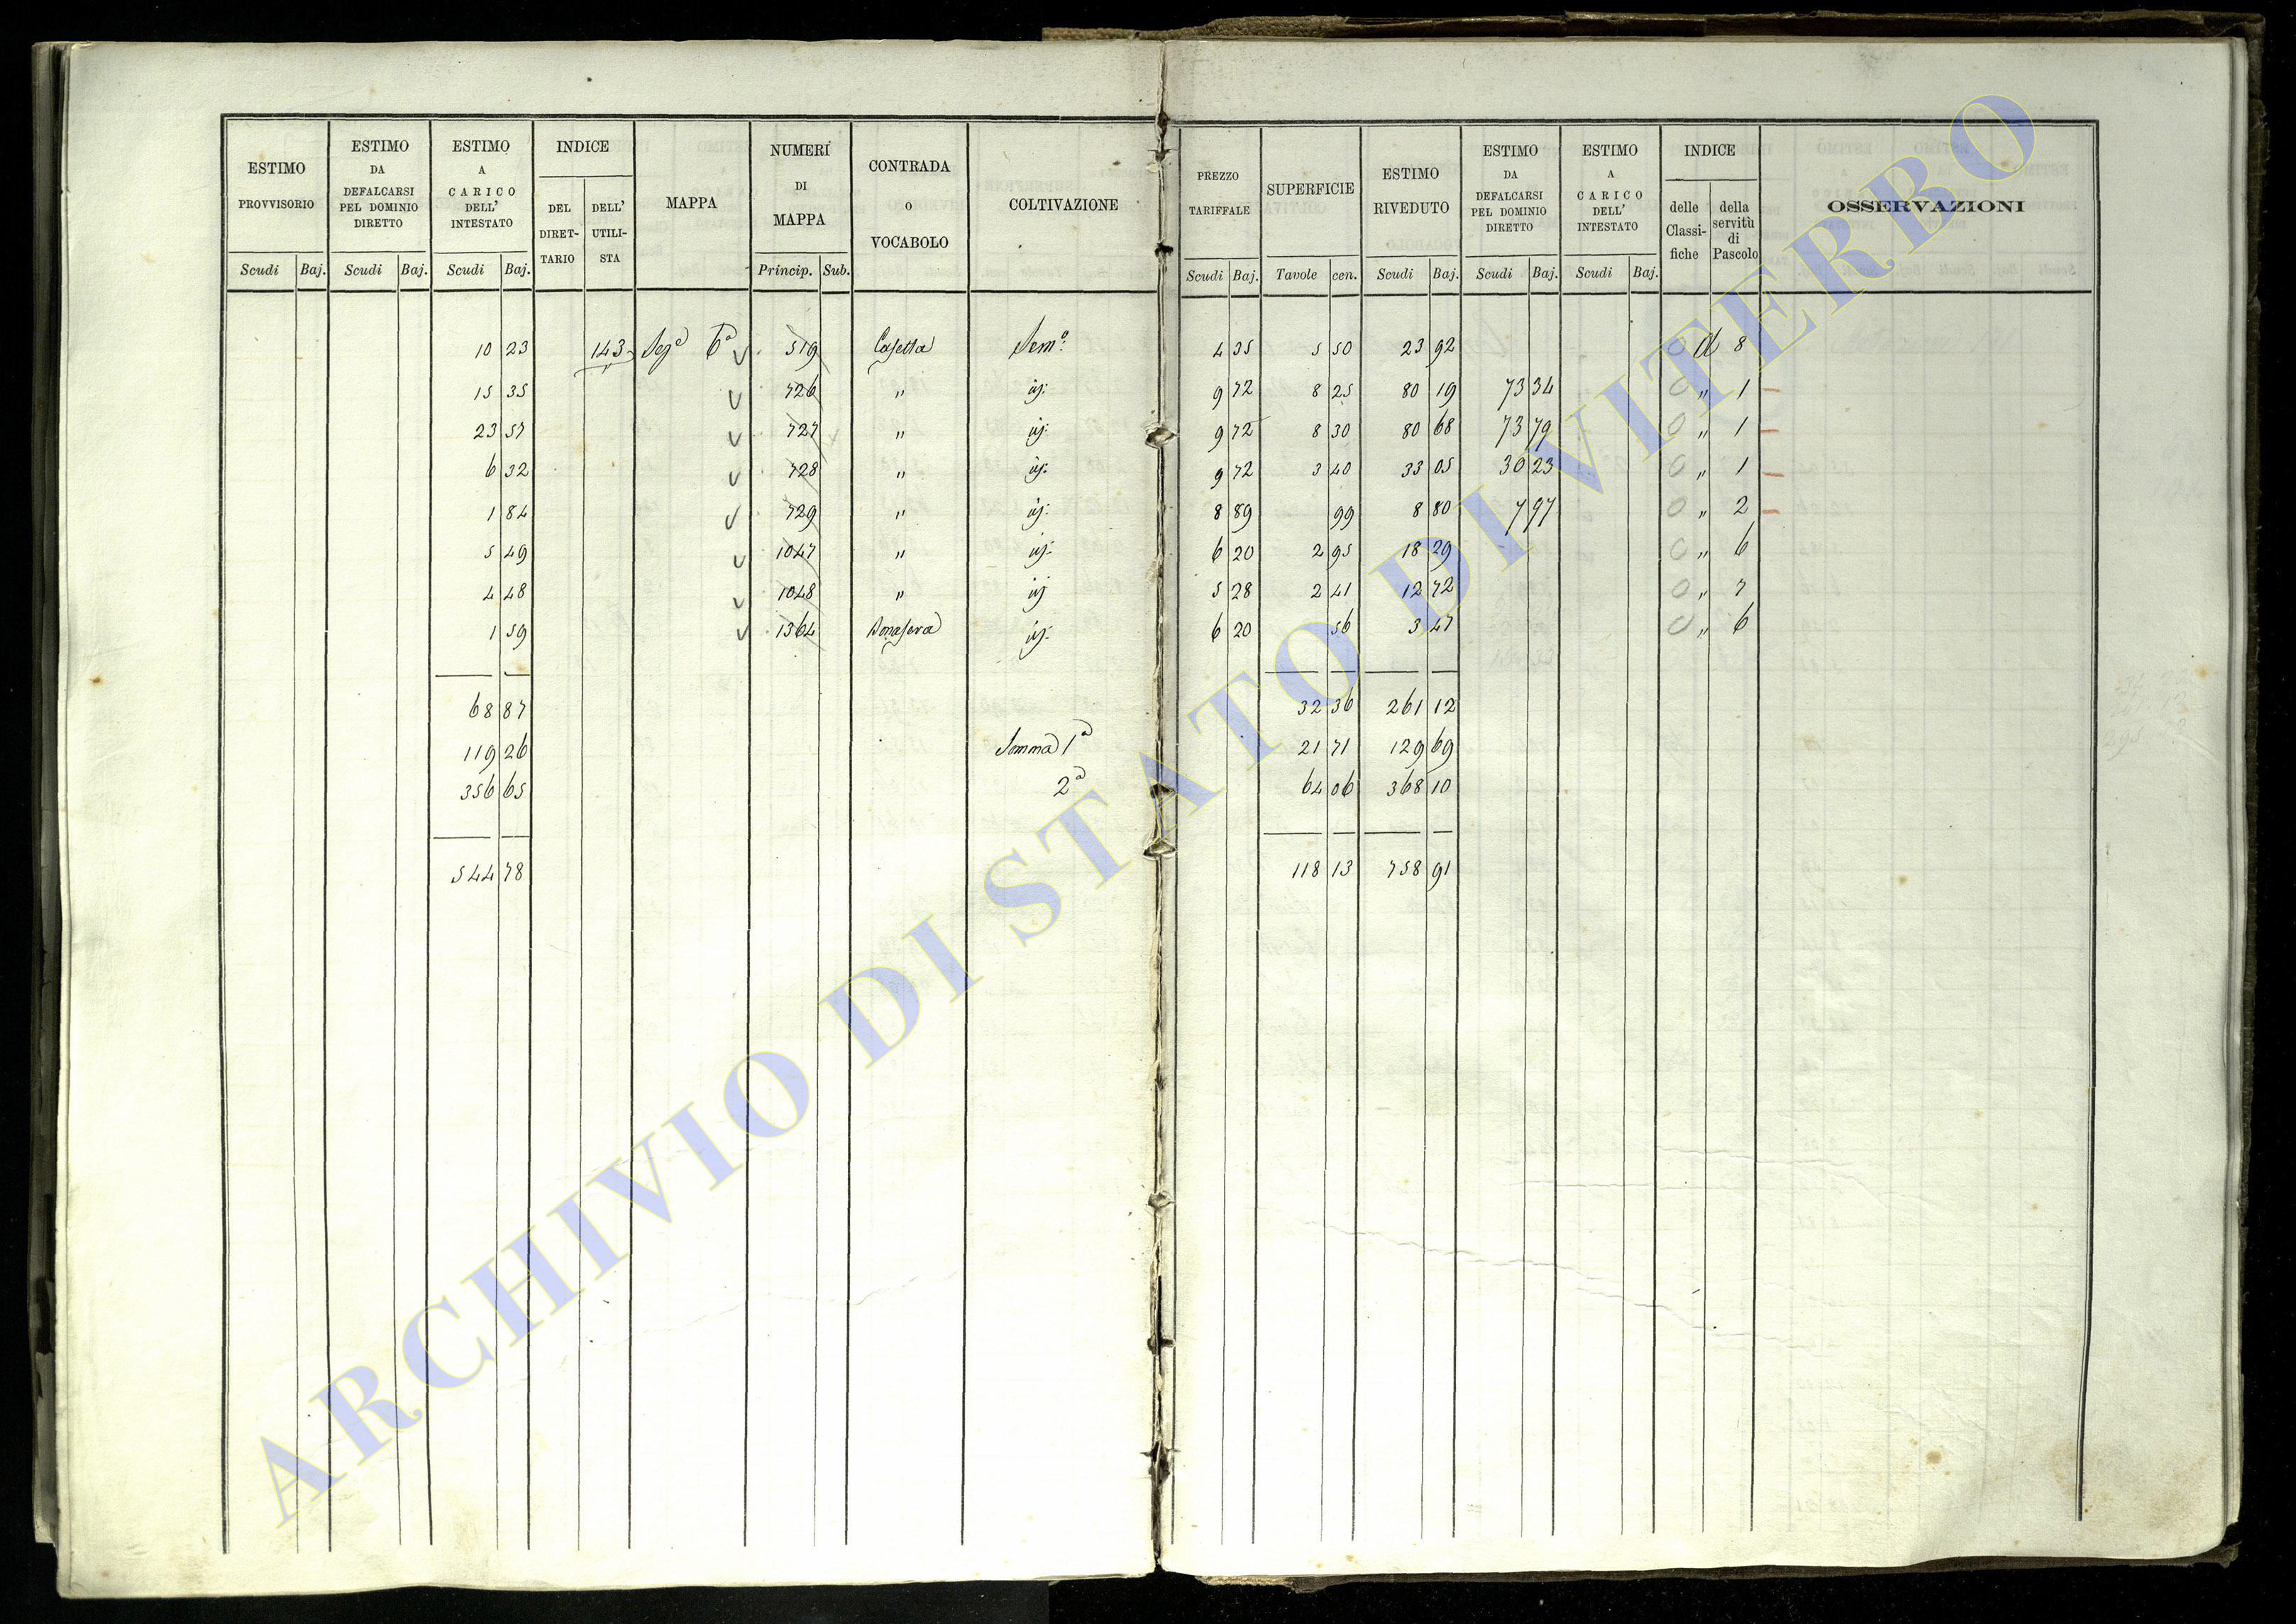 ESTIMO PROVVISORIO | ESTIMO DA DEFALCARSI PEL DOMINIO DIRETTO | ESTIMO A CARICO DELL' INTESTATO | INDICE | MAPPA | NUMERI DI MAPPA | CONTRADA O VOCABOLO | COLTIVAZIONE | PREZZO TARIFFALE | SUPERFICIE | ESTIMO RIVEDUTO | ESTIMO DA DEFALCARSI PEL DOMINIO DIRETTO | ESTIMO A CARICO DELL' INTESTATO | INDICE | OSSERVAZIONI
DEL DIRET-TARIO | DELL' UTILI-STA | delle Classi-fiche | della servitù di Pascolo
Scudi | Baj. | Scudi | Baj. | Scudi | Baj. | Princip. | Sub. | Scudi | Baj. | Tavole | cen. | Scudi | Baj. | Scudi | Baj. | Scudi | Baj.
10 23 | 143 | Sez.e 6a | 519 | Casetta | Sem.o | 4 35 | 5 50 | 23 92 | d 8
15 35 | 726 | " | id: | 9 72 | 8 25 | 80 19 | 73 34 | " 1
23 57 | 727 | " | id: | 9 72 | 8 30 | 80 68 | 73 79 | " 1
6 32 | 728 | " | id: | 9 72 | 3 40 | 33 05 | 30 23 | " 1
1 84 | 729 | " | id: | 8 89 | 99 | 8 80 | 7 97 | " 2
5 49 | 1047 | " | id: | 6 20 | 2 95 | 18 29 | " 6
4 48 | 1048 | " | id | 5 28 | 2 41 | 12 72 | " 7
1 59 | 1364 | id: | 6 20 | 56 | 3 47 | " 6
68 87 | 32 36 | 261 12
119 26 | Somma 1a | 21 71 | 129 69
356 65 | 2a | 64 06 | 368 10
544 78 | 118 13 | 758 91
ARCHIVIO DI STATO DI VITERBO